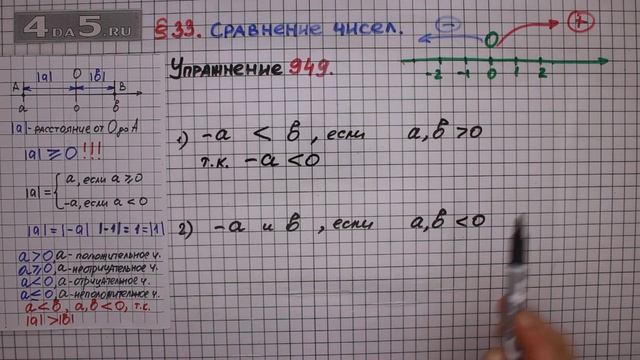 4DA5.RU
§ 33. Сравнение чисел.
Упражнение 949.
- +
0
-2 -1 0 1 2
|a| 0 |b|
A B
a 0 b
|a| - расстояние от 0 до A
|a| ≥ 0 !!!
|a| = { a, если a ≥ 0
-a, если a < 0
|a| = |-a| |-1| = 1 = |1|
a > 0, a - положительное ч.
a ≥ 0, a - неотрицательное ч.
a < 0, a - отрицательное ч.
a ≤ 0, a - неположительное ч.
a < b, a, b < 0, т.к.
|a| > |b|
1) -a < b, если a, b > 0
т.к. -a < 0
2) -a и b, если a, b < 0